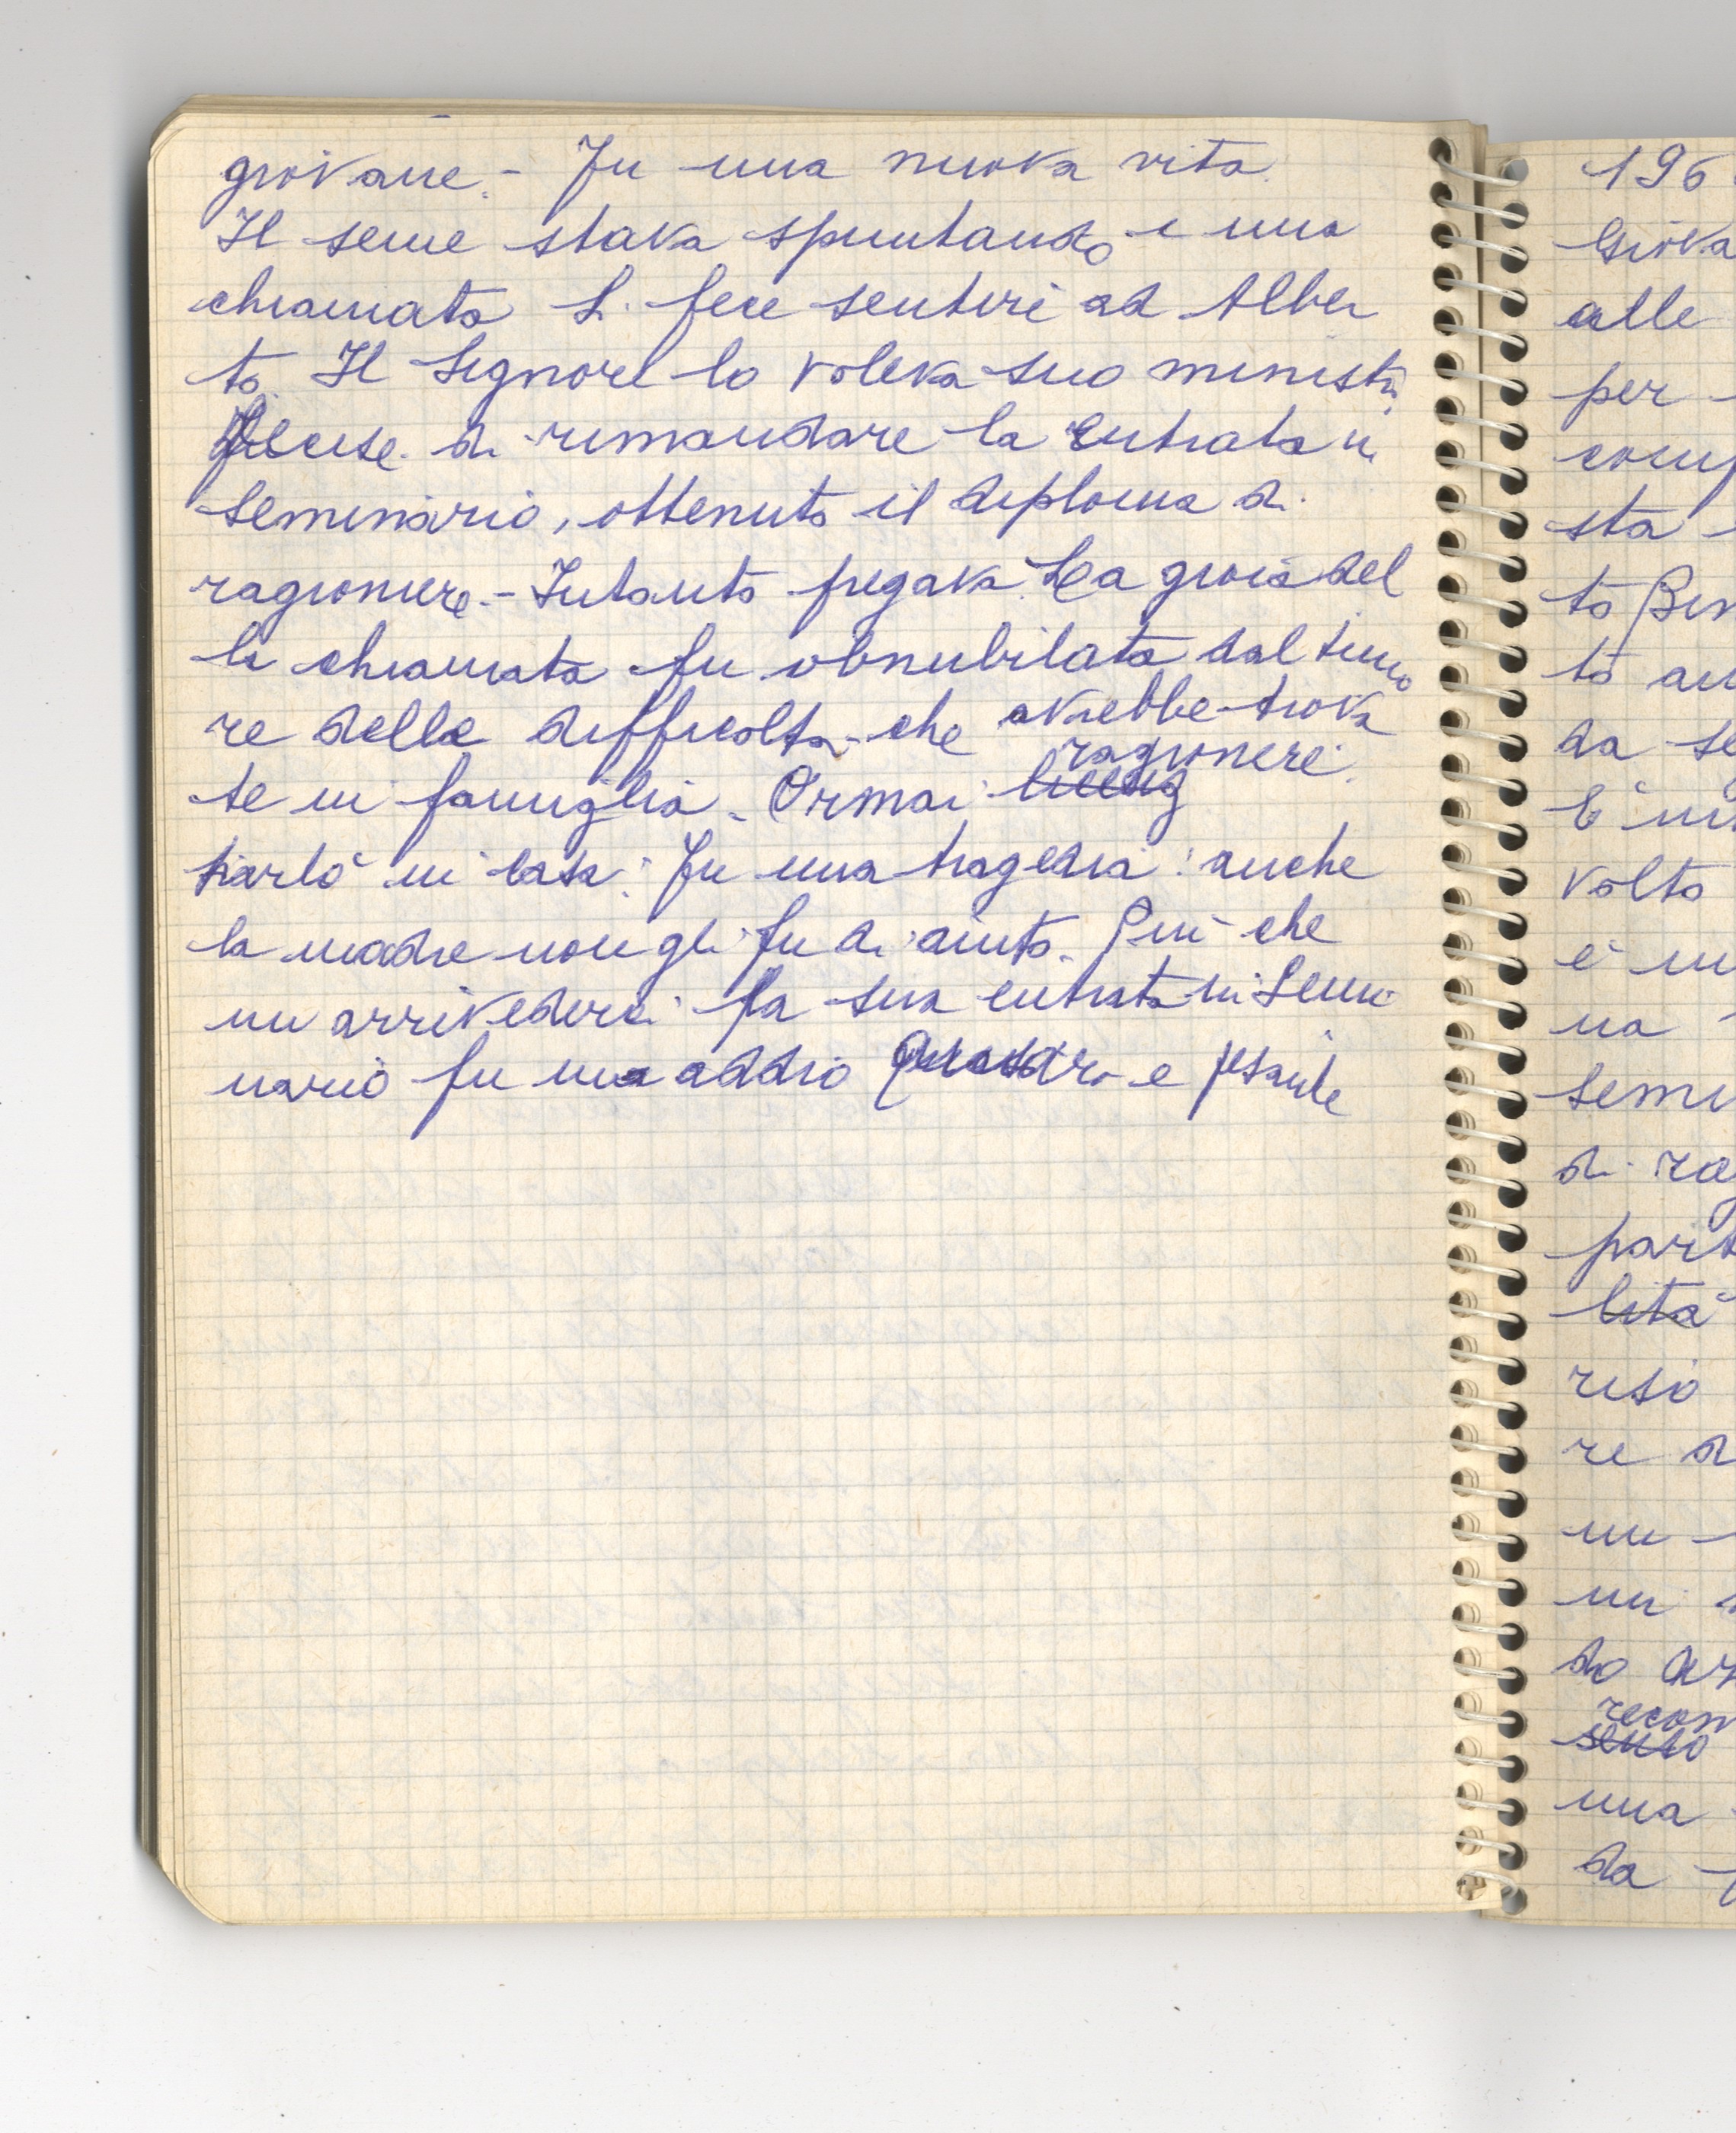 giovane.- Fu una nuova vita.
Il seme stava spuntando e una
chiamata si fece sentire ad Alber
to. Il Signore lo voleva suo ministro
Decise di rimandare la entrata in
seminario, ottenuto il diploma di
ragioniere.- Intanto pregava. La gioia del
la chiamata fu obnubilata dal timo
re delle difficoltà che avrebbe trova
te in famiglia. Ormai ragioniere.
Parlò in casa: Fu una tragedia: anche
la madre non gli fu di aiuto. Più che
un arrivederci la sua entrata in Semi
nario fu un addio e pesante
196
Giova
alle
per
comp
sta
to Ben
to au
da se
l'in
volto
è in
na
semi
di rag
part
lità
riso
re d
un
un
do ar
recon
senso
una
da